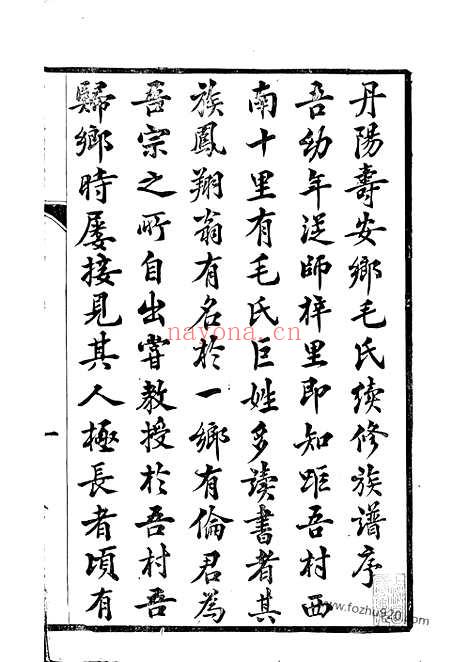 丹陽壽安鄉毛氏續修族譜序
吾幼年從師梓里即知距吾村西
南十里有毛氏巨姓多讀書者其
族鳳翔翁有名於一鄉有倫君為
吾宗之所自出嘗教授於吾村吾
歸鄉時屢接見其人極長者頃有
一
nayona.cn
www.fozhu920.com